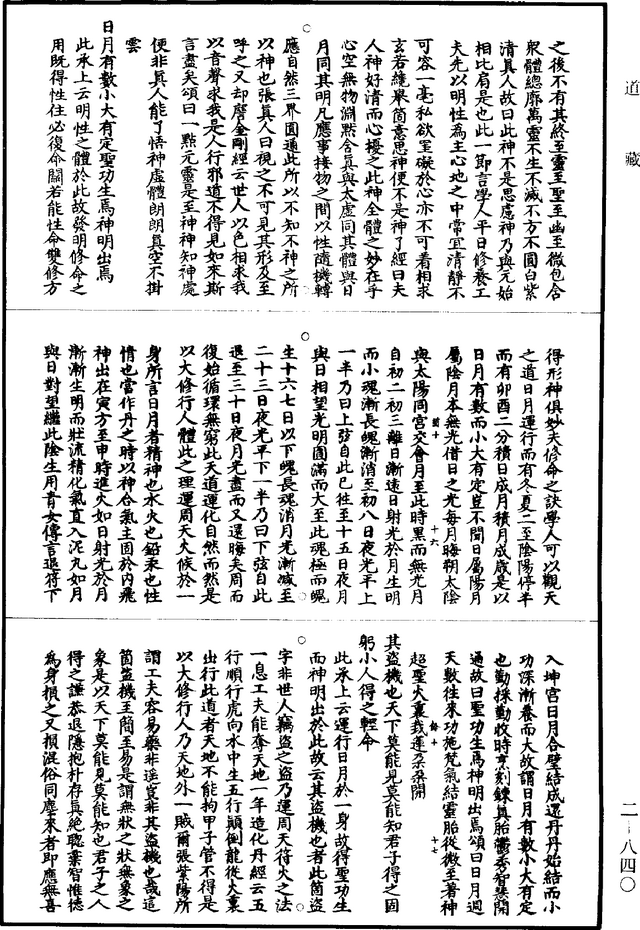 道藏
之後不有其終至靈至聖至幽至微包含
眾體總廓萬靈不生不滅不方不圓白紫
清真人故曰此神不是思慮神乃與元始
相比肩是也此一節言學人平日修養工
夫先以明性為主心地之中常宜清靜不
可容一毫私欲罣礙於心亦不可着相求
玄若纔舉箇意思神便不是神了經曰夫
人神好清而心擾之此神全體之妙在乎
心空無物淵默合真與太虛同其體與日
月同其明凡應事接物之間以性隨機轉
應自然三界圓通此所以不知不神之所
以神也張真人曰視之不可見其形及至
呼之又却譍金剛經云世人以色相求我
以音聲求我是人行邪道不得見如來斯
言盡矣頌曰一點元靈是至神神知神處
便非真人能了悟神虛體朗朗真空不掛
雲
日月有數小大有定聖功生焉神明出焉
此承上云明性之體於此故發明修命之
用既得性住必復命關若能性命雙修方
得形神俱妙夫修命之訣學人可以觀天
之道日月運行而有冬夏二至陰陽停半
而有卯酉二分積日成月積月成歲是以
日月有數而小大有定豈不聞日屬陽月
屬陰月本無光借日之光每月晦朔太陰
與太陽同宮交會月至此時黑而無光月
自初二初三離日漸遠日射光於月生明
而小魂漸長魄漸消至初八日夜光平上
一半乃曰上弦自此已往至十五日夜月
與日相望光明圓滿而大至此魂極而魄
生十六七日以下魄長魂消月光漸減至
二十三日夜光平下一半乃曰下弦自此
還至三十日夜月光盡而又還晦矣周而
復始循環無窮此天道運化自然而然是
以大修行人體此之理運周天火候於一
身所言日月者精神也水火也鉛汞也性
情也當作丹之時以神合氣主固於內飛
神出在寅方至申時進火如日射光於月
漸漸生明而壯流精化氣直入泥丸如月
與日對望繼此陰生用青女傳言退符下
入坤宮日月合璧結成還丹丹始結而小
功深漸養而大故謂日月有數小大有定
也勤採勤收時烹刻鍊真胎鬱秀智慧開
通故曰聖功生焉神明出焉頌曰日月週
天數往來功施梵氣結靈胎從微至著神
超聖火裏栽蓮朵朵開
其盜機也天下莫能見莫能知君子得之固
躬小人得之輕命
此承上云運行日月於一身故得聖功生
而神明出於此故云其盜機也者此箇盜
字非世人竊盜之盜乃運周天符火之法
一息工夫能奪天地一年造化丹經云五
行順行虎向水中生五行顛倒龍從火裏
出行此道者天地不能拘甲子管不得是
以大修行人乃天地外一賊爾張紫陽所
謂工夫容易藥非遥豈非其盜機也哉這
箇盜機至簡至易是謂無狀之狀無象之
象是以天下莫能見莫能知也君子之人
得之謹恭退隱抱朴存真絕聰棄智惟德
為身損之又損混俗同塵來者即應無喜
二-八四〇